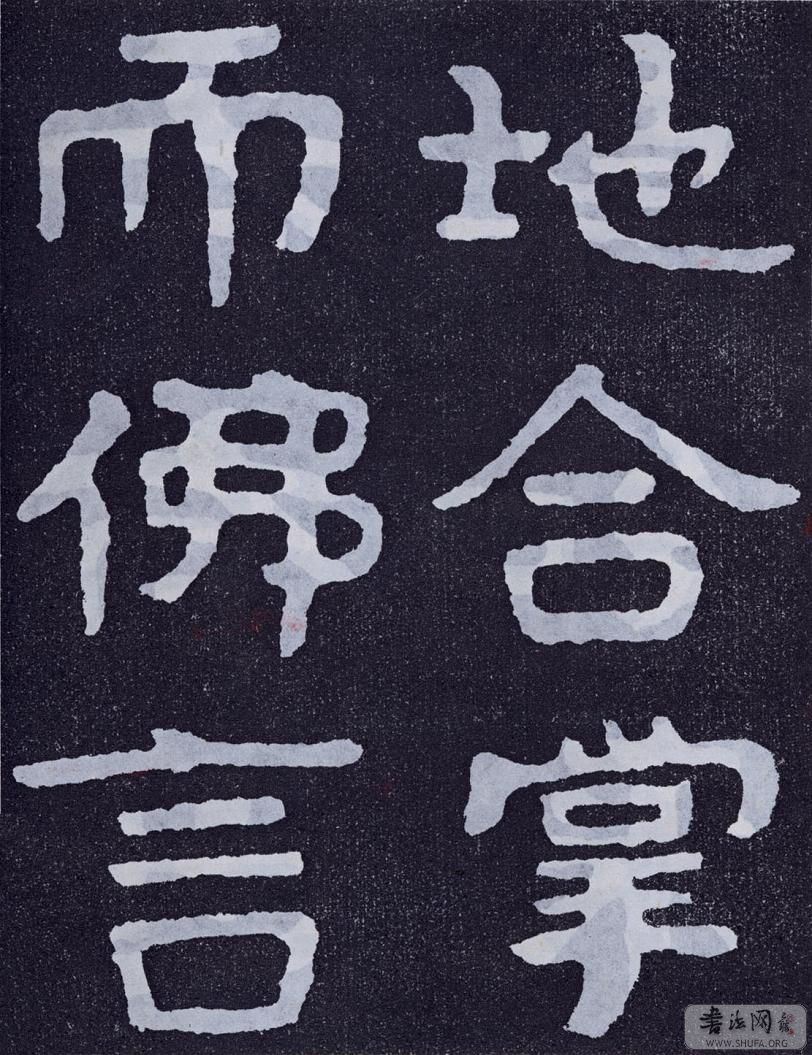 地合掌
而佛言
書法网
WWW.SHUFA.ORG